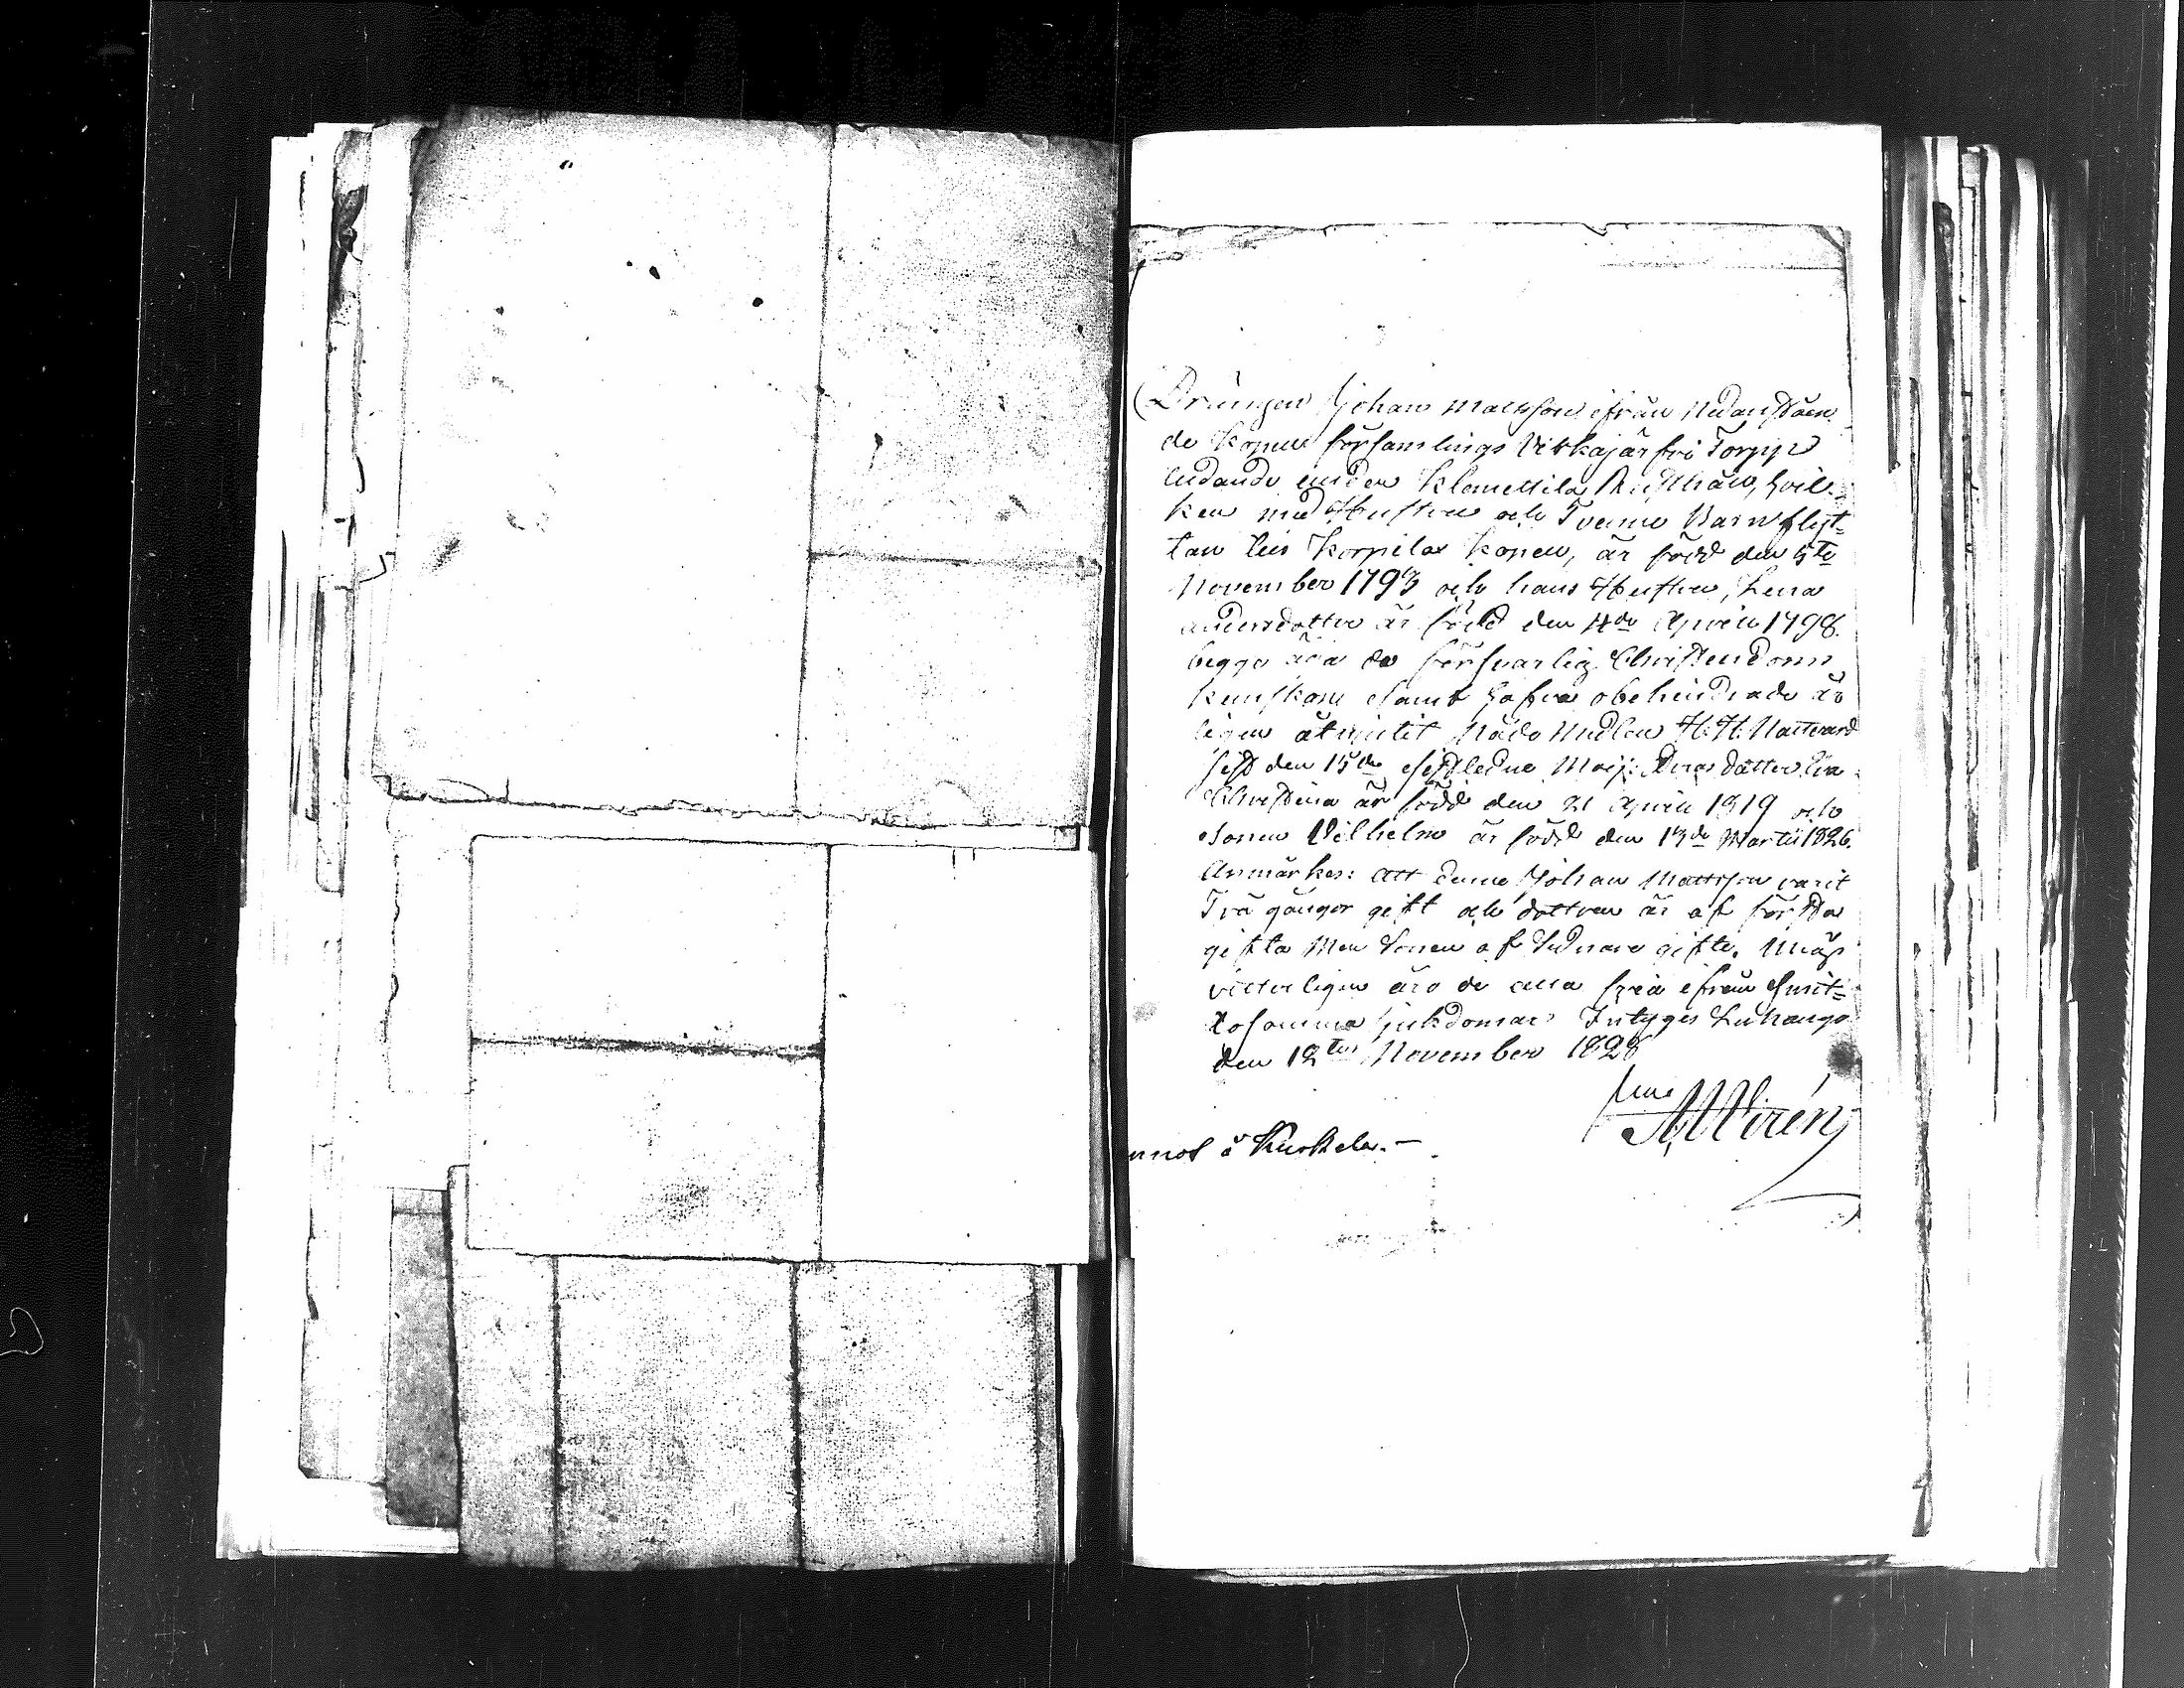 Drängen Johan Mattsson ifrån Nedanståen
de Kapell församlings Torpp
lydande under hvil
ken med Hustru och Tvenne Barn flyt=
tar till Korpilax Kapell, är född den 5te
November 1793 och hans Hustru, Lena
Andersdotter är född den 4de Aprill 1798.
begge äga de försvarlig Christendoms
kunskap samt hafva obehindrade är
ligen åtnjutit Nåde Medlen H. H. Nattvard
sist den 15de sistledne Maij. Deras dotter Eva
Christina är född den 21 Aprill 1819 och
Sonen Vilhelm är född den 13de Martii 1826.
Anmärkes: att denne Johan Mattsson varit
Två gånger gift och dottren är af första
gifta Men Sonen af Sednare gifte.
vitterligen äro de alla fria ifrån smit=
tosamma sjukdomar: Intygas Luhango
den 12te November 1828
A Wirén
å Kuokala. —